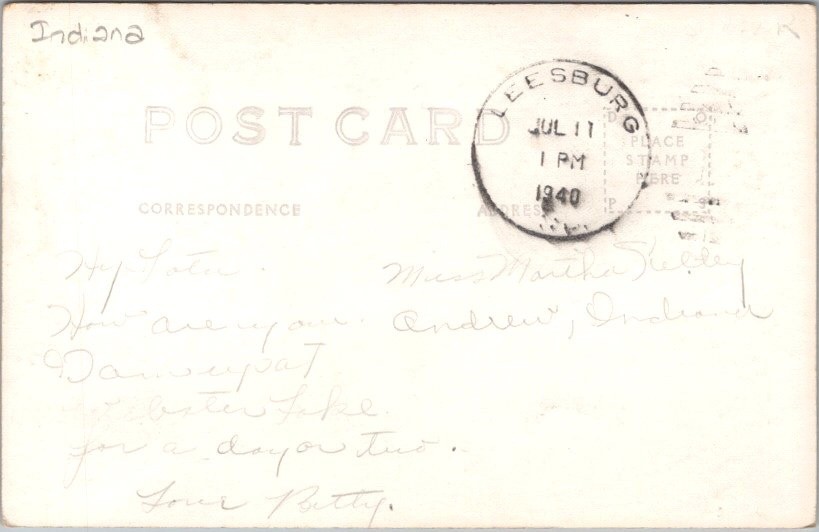 Indiana
POST CARD
LEESBURG
JUL 11
1 PM
1940
PLACE
STAMP
HERE
CORRESPONDENCE
ADDRESS
Hy
How are you.
up at
Lake
for a day or two.
Love Betty.
Miss Martha Kelley
Andrew, Indiana